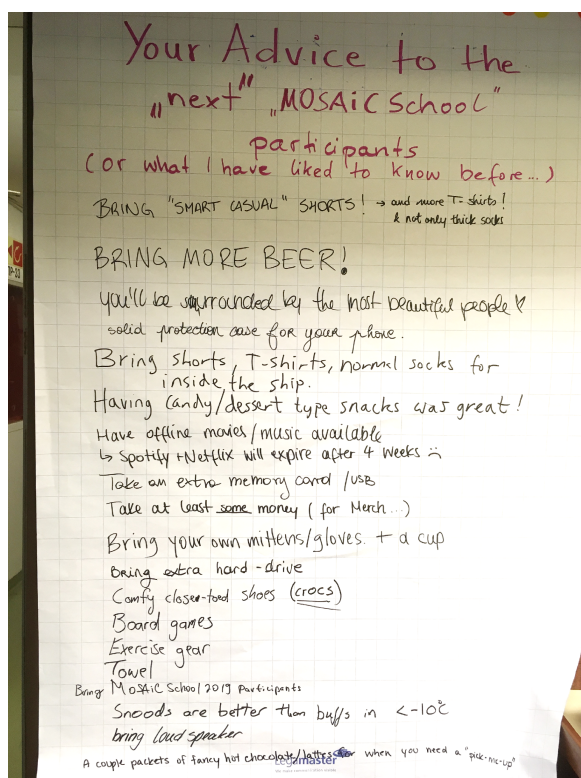 Your Advice to the
„next" „MOSAiC School"
participants
(or what I have liked to know before...)
BRING "SMART CASUAL" SHORTS! → and more T-shirts!
& not only thick socks
BRING MORE BEER!
you'll be surrounded by the most beautiful people ♡
solid protection case for your phone.
Bring shorts, T-shirts, normal socks for
inside the ship.
Having candy/dessert type snacks was great!
Have offline movies/music available
↳ Spotify + Netflix will expire after 4 weeks ☹
Take an extra memory card /USB
Take at least some money (for Merch...)
Bring your own mittens/gloves. + a cup
Bring extra hard-drive
Comfy closer-toed shoes (crocs)
Board games
Exercise gear
Towel
Bring MOSAiC School 2019 Participants
Snoods are better than buffs in <-10°C
bring loud speaker
A couple packets of fancy hot chocolate/lattes for when you need a "pick-me-up"
Legamaster